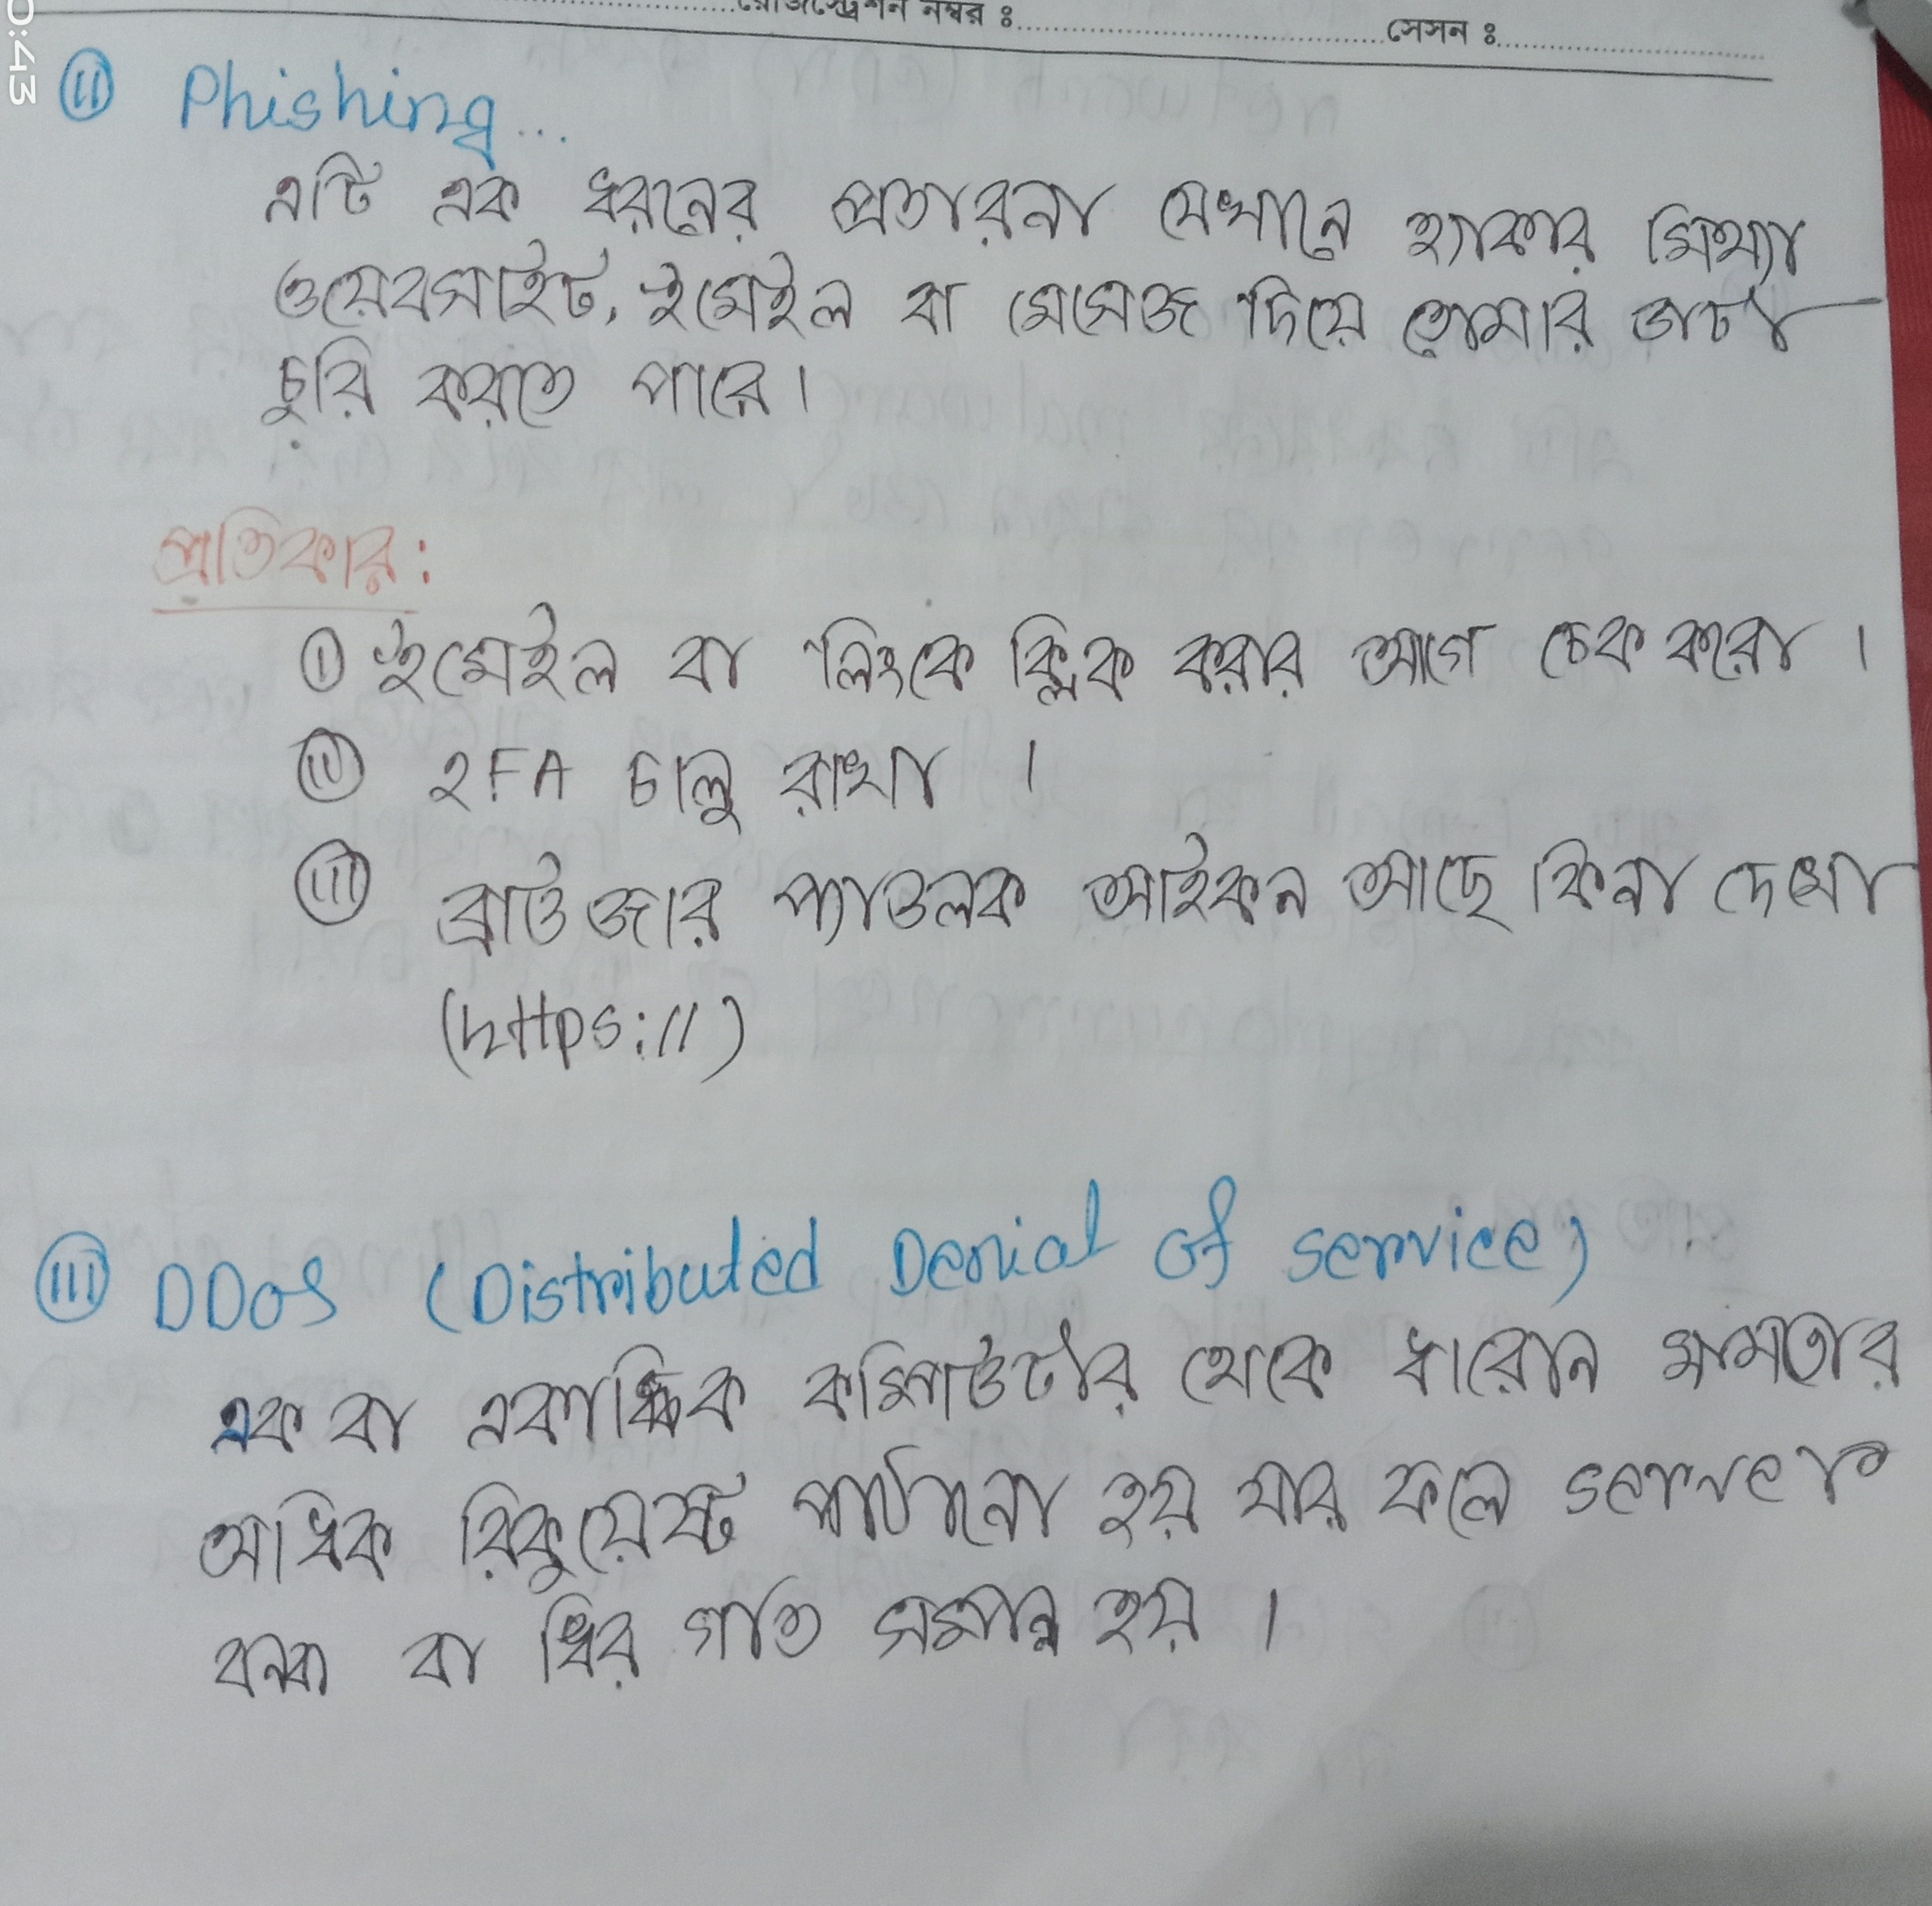 রেজিস্ট্রেশন নম্বর ঃ........................সেসন ঃ........................
0:43
ii Phishing...
এটি এক ধরনের প্রতারনা যেখানে হ্যাকার মিথ্যা
ওয়েবসাইট, ইমেইল বা মেসেজ দিয়ে তোমার ডাটা
চুরি করতে পারে।
প্রতিকার:
i ইমেইল বা লিংকে ক্লিক করার আগে চেক করো ।
ii 2FA চালু রাখা ।
iii ব্রাউজার প্যাডলক আইকন আছে কিনা দেখা
(https://)
iii DDoS (Distributed Denial of service)
এক বা একাধিক কম্পিউটার থেকে ধারোন ক্ষমতার
অধিক রিকুয়েস্ট পাঠানো হয় যার ফলে server
বন্ধ বা ধির গতি সম্পন্ন হয় ।